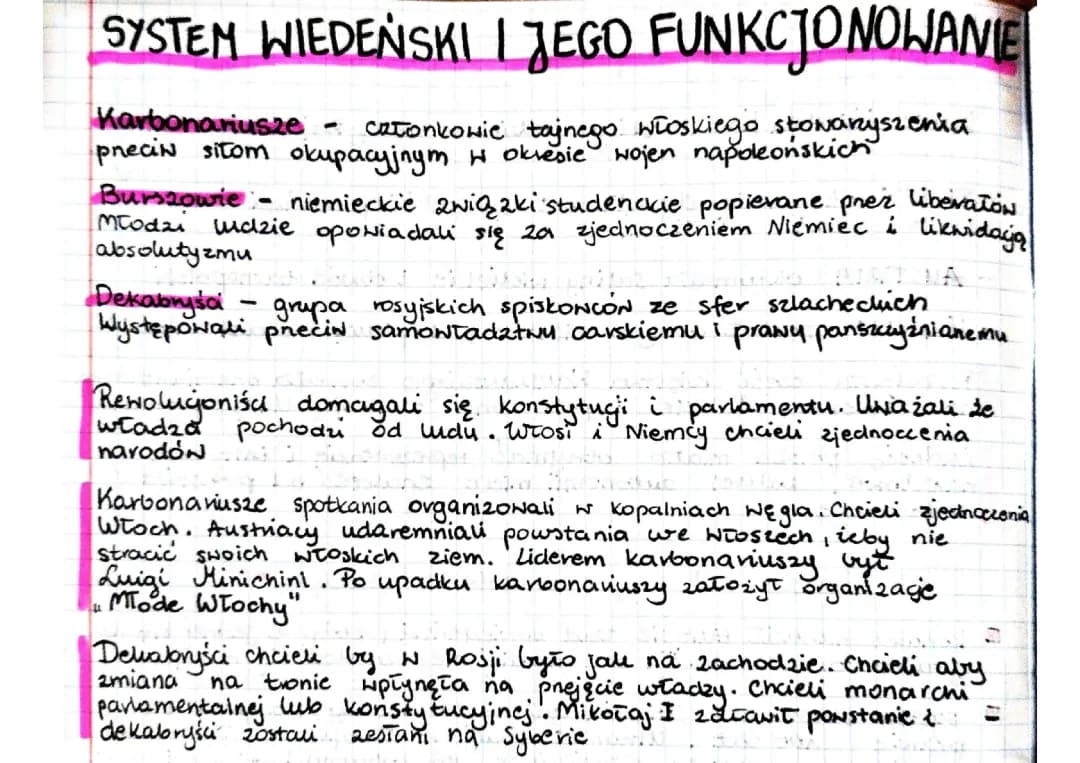 SYSTEM WIEDEŃSKI I JEGO FUNKCJONOWANIE
Karbonariusze - członkowie tajnego włoskiego stowarzyszenia
przeciw siłom okupacyjnym w okresie wojen napoleońskich
Burszowie - niemieckie związki studenckie popierane przez liberałów
Młodzi ludzie opowiadali się za zjednoczeniem Niemiec i likwidacją
absolutyzmu
Dekabryści - grupa rosyjskich spiskowców ze sfer szlacheckich
Występowali przeciw samowładztwu carskiemu i prawu pańszczyźnianemu
Rewolucjoniści domagali się konstytucji i parlamentu. Uważali że
władza pochodzi od ludu. Włosi i Niemcy chcieli zjednoczenia
narodów
Karbonariusze spotkania organizowali w kopalniach węgla. Chcieli zjednoczenia
Włoch. Austriacy udaremniali powstania we Włoszech, żeby nie
stracić swoich włoskich ziem. Liderem karbonariuszy był
Luigi Minichini. Po upadku karbonariuszy założył organizacje
„Młode Włochy"
Dekabryści chcieli by w Rosji było jak na zachodzie. Chcieli aby
zmiana na tronie wpłynęła na przejęcie władzy. Chcieli monarchi
parlamentalnej lub konstytucyjnej. Mikołaj I zdławił powstanie i
dekabryści zostali zesłani na Syberie